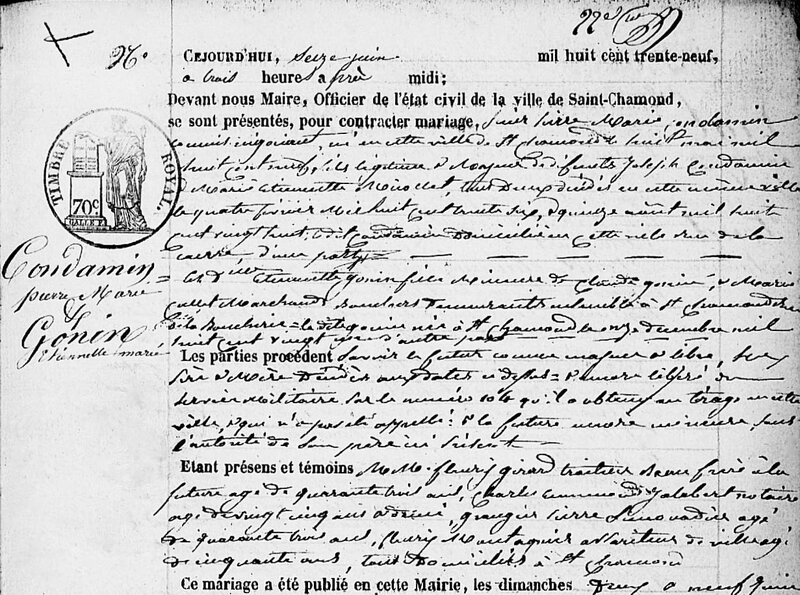 CEJOURD'HUI, Seize juin mil huit cent trente-neuf,
a trois heures après midi;
Devant nous Maire, Officier de l'état civil de la ville de Saint-Chamond,
se sont présentés, pour contracter mariage, Sieur Pierre Marie Condamin
né en cette ville de St Chamond le huit mai mil
huit cent neuf, fils légitime & Majeur de défunts Joseph Condamin
& Marie Etiennette tous deux décédés en cette même ville
le quatre février Mil huit cent trente six, & quinze août mil huit
cent vingt huit, ledit Condamin Domicilié en cette ville rue de la
d'une part,
TIMBRE ROYAL.
70c
Condamin
pierre Marie
&
Gonin
Etiennette marie
Etiennette gonin fille Mineure de Claude gonin, & Marie
Marchands Bouchers Demeurants ensemble à St Chamond
la Boucherie = la dite gonin née à St Chamond le onze décembre mil
huit cent vingt d'autre part
Les parties procédent Savoir le futur comme majeur & libre, Ses
père & Mère Décédés aux dates ci dessus = & encore libéré du
Service Militaire Sur le numéro 104 qu'il a obtenu au tirage en cette
ville, & qui n'a pas été appellé: & la future encore mineure, sous
l'autorité de Son père ici présent
Etant présens et témoins M.M. fleury girard traiteur beau frère à la
future agé de quarante trois ans, Charles Jalabert notaire
agé de vingt cinq ans & demi, granger pierre agé
de quarante trois ans, fleury Montagner de ville agé
de cinquante ans, tous Domiciliés à St Chamond
Ce mariage a été publié en cette Mairie, les dimanches Deux & neuf juin